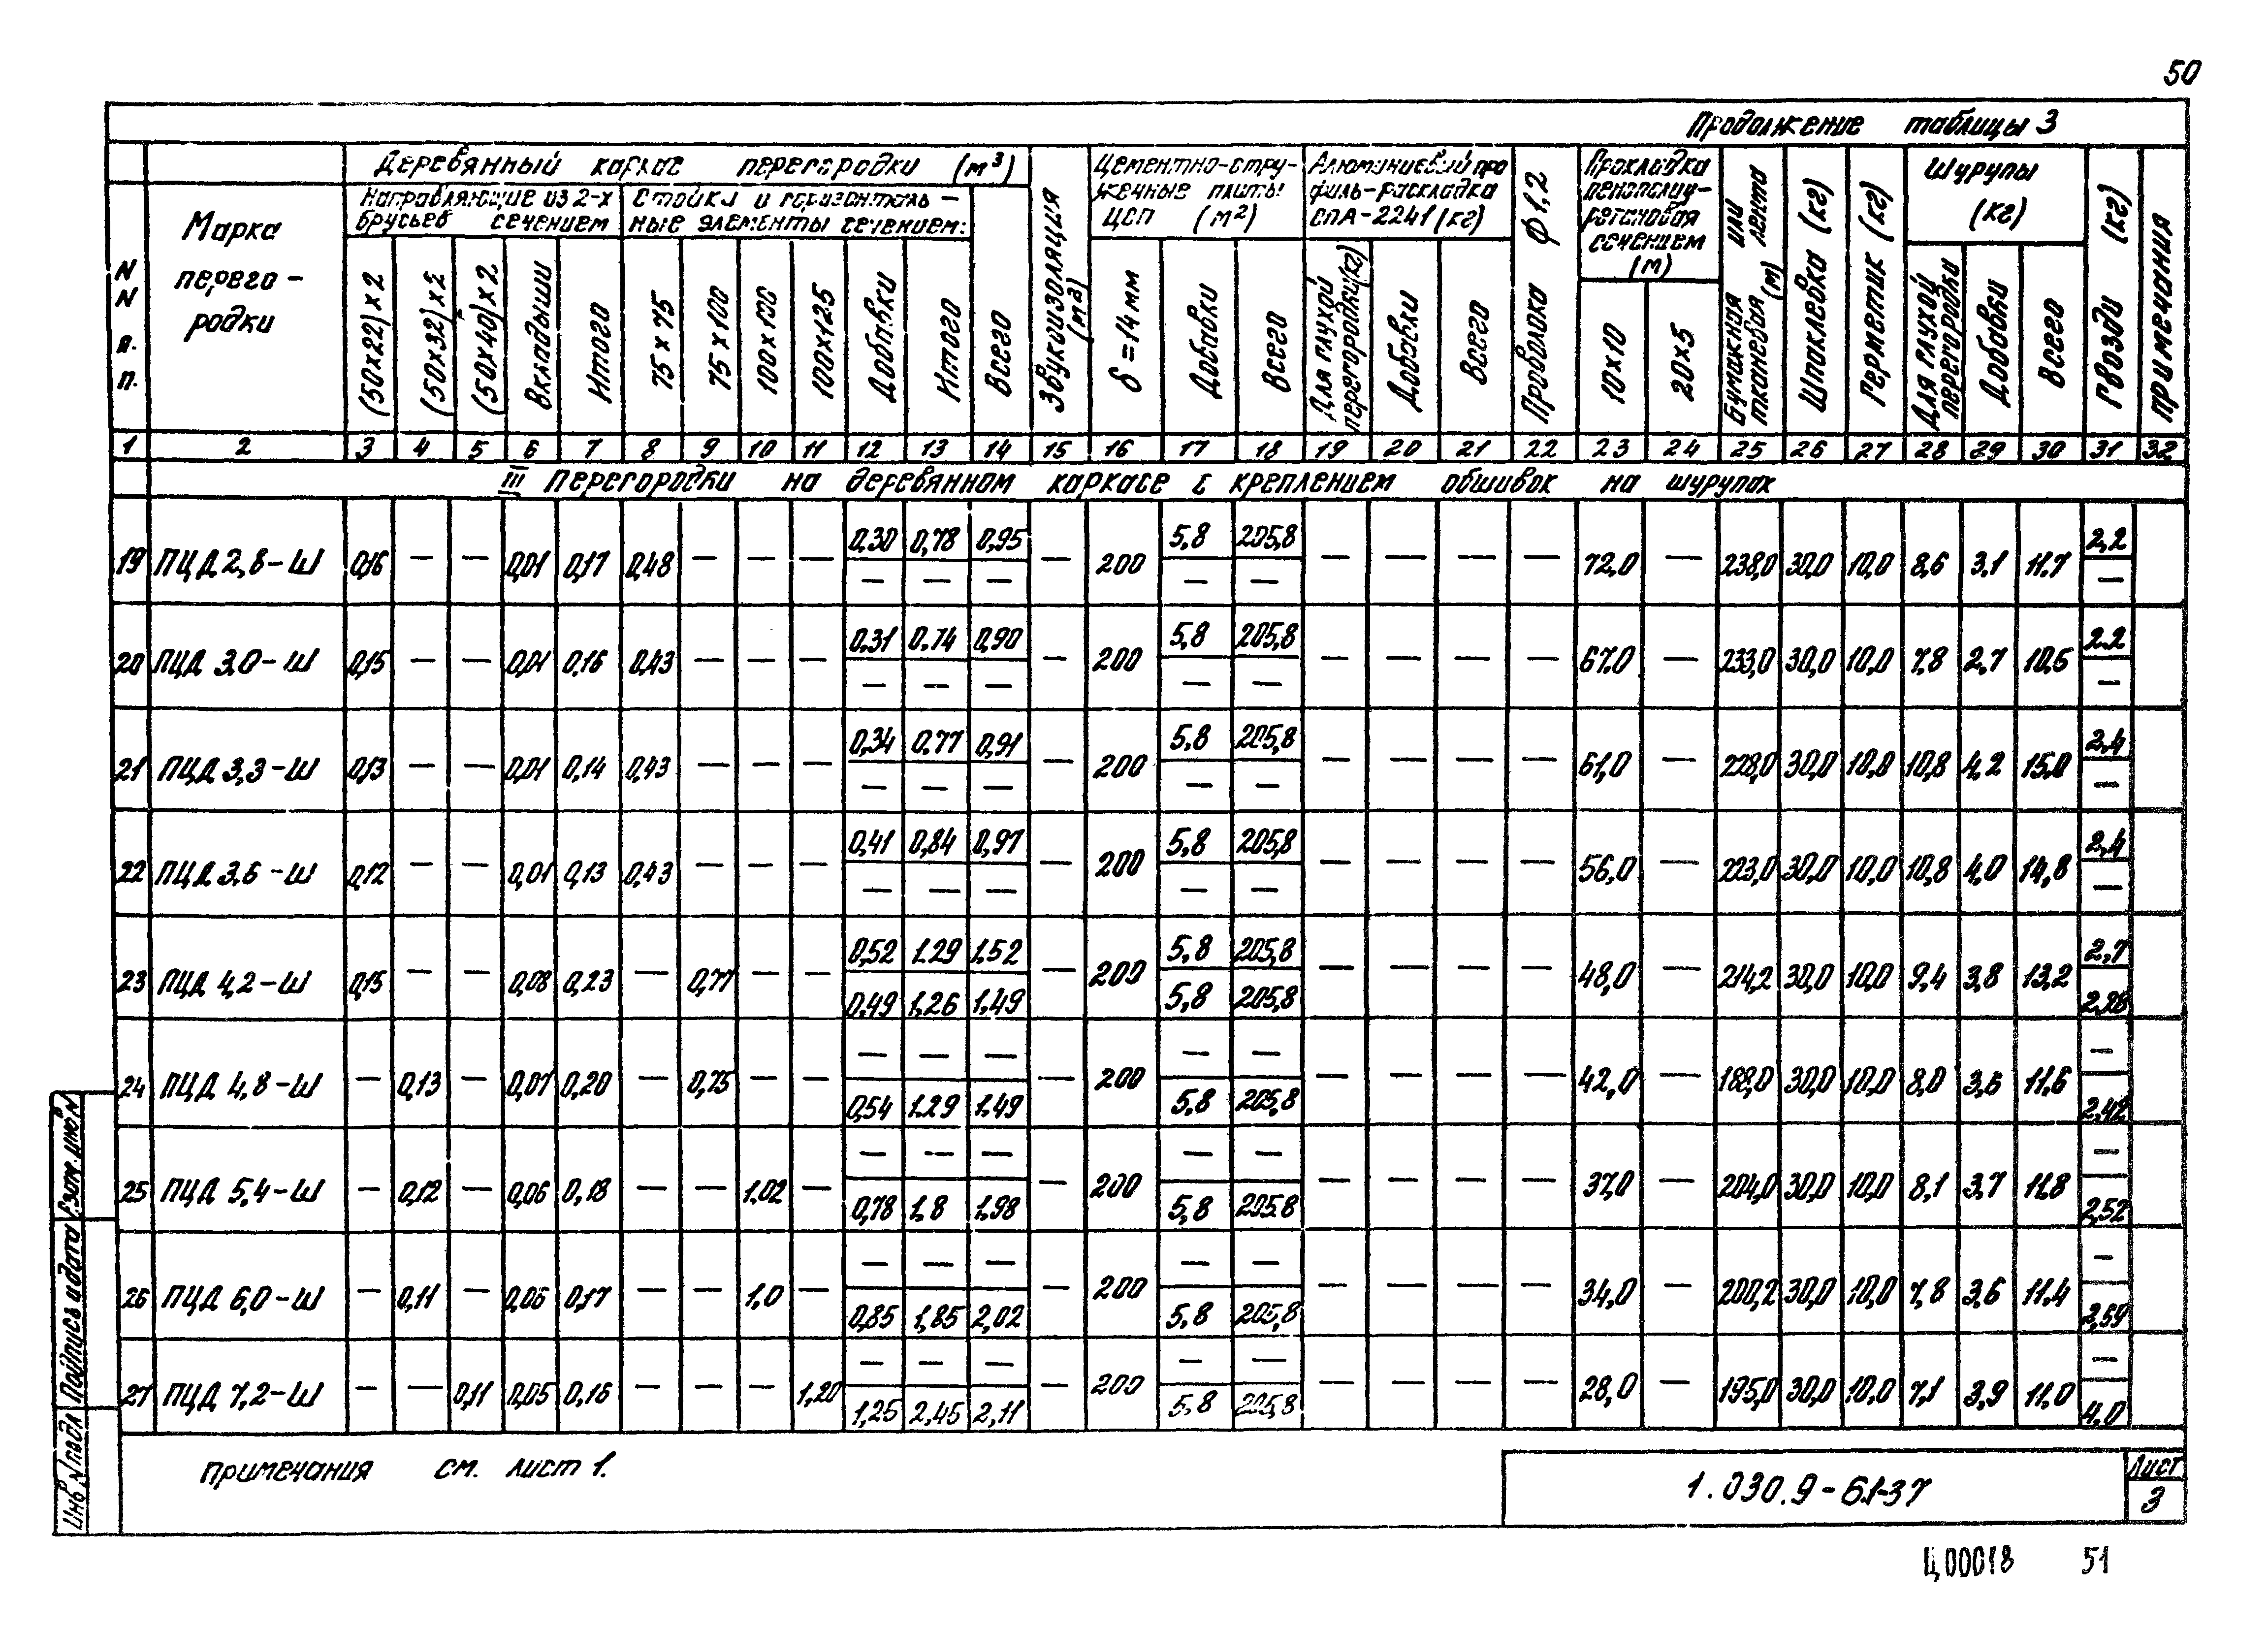 50
Продолжение таблицы 3
N N п. п.
Марка перего-родки
Деревянный каркас перегородки (м³)
Направляющие из 2-х брусьев сечением
Стойки и горизонталь-ные элементы сечением:
(50х22)х2
(50х32)х2
(50х40)х2
Вкладыши
Итого
75х75
75х100
100х100
100х125
Добавки
Итого
Всего
Звукоизоляция (м²)
Цементно-стру-жечные плиты ЦСП (м²)
δ=14мм
Добавки
Всего
Алюминиевый про филь-раскладка СПА-2241(кг)
Для глухой перегородки(кг)
Добавки
Всего
Проволока ф1,2
Прокладка пенополиу-ретановая сечением (м)
10х10
20х5
Бумажная или тканевая лента (м)
Шпаклевка (кг)
Герметик (кг)
Шурупы (кг)
Для глухой перегородки
Добавки
Всего
Гвозди (кг)
Примечания
1 2 3 4 5 6 7 8 9 10 11 12 13 14 15 16 17 18 19 20 21 22 23 24 25 26 27 28 29 30 31 32
III Перегородки на деревянном каркасе с креплением обшивок на шурупах
19 ПЦД 2,8-Ш 0,16 — — 0,01 0,17 0,48 — — — 0,30 0,78 0,95 — 200 5,8 205,8 — — — — 72,0 — 238,0 30,0 10,0 8,6 3.1 11.7 2,2
— — — — — —
20 ПЦД 3,0-Ш 0,15 — — 0,01 0,16 0,43 — — — 0,31 0,74 0,90 — 200 5,8 205,8 — — — — 67,0 — 233,0 30,0 10,0 7,8 2,7 10,5 2.2
— — — — — —
21 ПЦД 3,3-Ш 0,13 — — 0,01 0,14 0,43 — — — 0,34 0,77 0,91 — 200 5.8 205,8 — — — — 61,0 — 228,0 30,0 10,0 10,8 4,2 15,0 2,4
— — — — — —
22 ПЦД 3,6-Ш 0,12 — — 0,01 0,13 0,43 — — — 0,41 0,84 0,97 — 200 5,8 205,8 — — — — 56,0 — 223,0 30,0 10,0 10,8 4,0 14,8 2,4
— — — — — —
23 ПЦД 4,2-Ш 0,15 — — 0,08 0,23 — 0,77 — — 0,52 1.29 1.52 — 200 5,8 205,8 — — — — 48,0 — 214,2 30,0 10,0 9,4 3,8 13,2 2,7
0,49 1,26 1,49 5,8 205,8
24 ПЦД 4,8-Ш — 0,13 — 0,07 0,20 — 0,75 — — — — — — 200 — — — — — — 42,0 — 188,0 30,0 10,0 8,0 3,6 11,6 —
0,54 1.29 1,49 5,8 205,8 2,42
25 ПЦД 5,4-Ш — 0,12 — 0,06 0,18 — — 1.02 — — — — — 200 — — — — — — 37,0 — 204,0 30,0 10,0 8,1 3,7 11,8 —
0,78 1,8 1,98 5,8 205,8 2,52
26 ПЦД 6,0-Ш — 0,11 — 0,06 0,17 — — 1,0 — — — — — 200 — — — — — — 34,0 — 200,2 30,0 10,0 7,8 3,6 11,4 —
0,85 1,85 2,02 5,8 205,8 2,59
27 ПЦД 7,2-Ш — — 0,11 0,05 0,16 — — — 1,20 — — — — 200 — — — — — — 28,0 — 195,0 30,0 10,0 7,1 3,9 11,0 —
1,25 2,45 2,11 5,8 205,8 4,0
Примечания см. лист 1.
1.030.9-6.1-37
Лист
3
Инв № подл
Подпись и дата
Взам. инв N
Ц00018 51